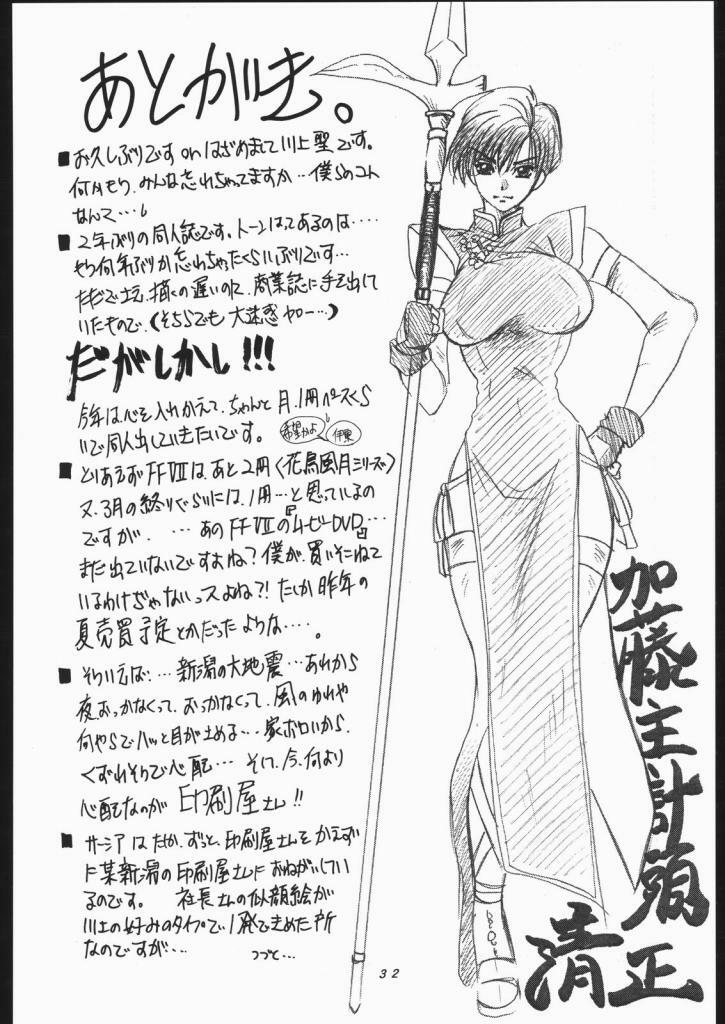 あとがき。
■お久しぶりです orはじめまして川上聖です。
何年もり、みんな忘れちゃってますか…僕らのコト
なんて…。
■2年ぶりの同人誌です。トーンはってあるのは‥‥
やう何年ぶりか忘れちゃったくらいぶりです…
ただでさえ、描くの遅いのに、商業誌に手を出して
いたもので、(そちらでも大迷惑ヤロー…)
だがしかし!!!
今年は心を入れかえて、ちゃんと月.1冊ペースくら
いで同人出していきたいです。
希望かよ
伊東
■とりあえずFFⅦは、あと2冊〈花鳥風月シリーズ〉
又、3月の終りぐらいには、1冊…と思っているの
ですが、…あのFFⅦの『ムービーDVD』…
まだ出ていないですよね?僕が、買いそこねて
いるわけぢゃないっスよね?!たしか昨年の
夏売買予定とかだったような‥‥。
■そういえば…新潟の大地震…あれから
夜おっかなくって、おっかなくって、風のゆれや
何やらでハッと目が止める…家ボロいから、
くずれそうで心配…そして、今、何より
心配なのが 印刷屋さん!!
■サーシアは たしか、ずっと、印刷屋さんをかえず
に某新潟の印刷屋さんに おねがいしてい
るのです。 社長さんの似顔絵が
川上の好みのタイプで、1発できめた所
なのですが… つづく…
加藤主計頭
清正
32